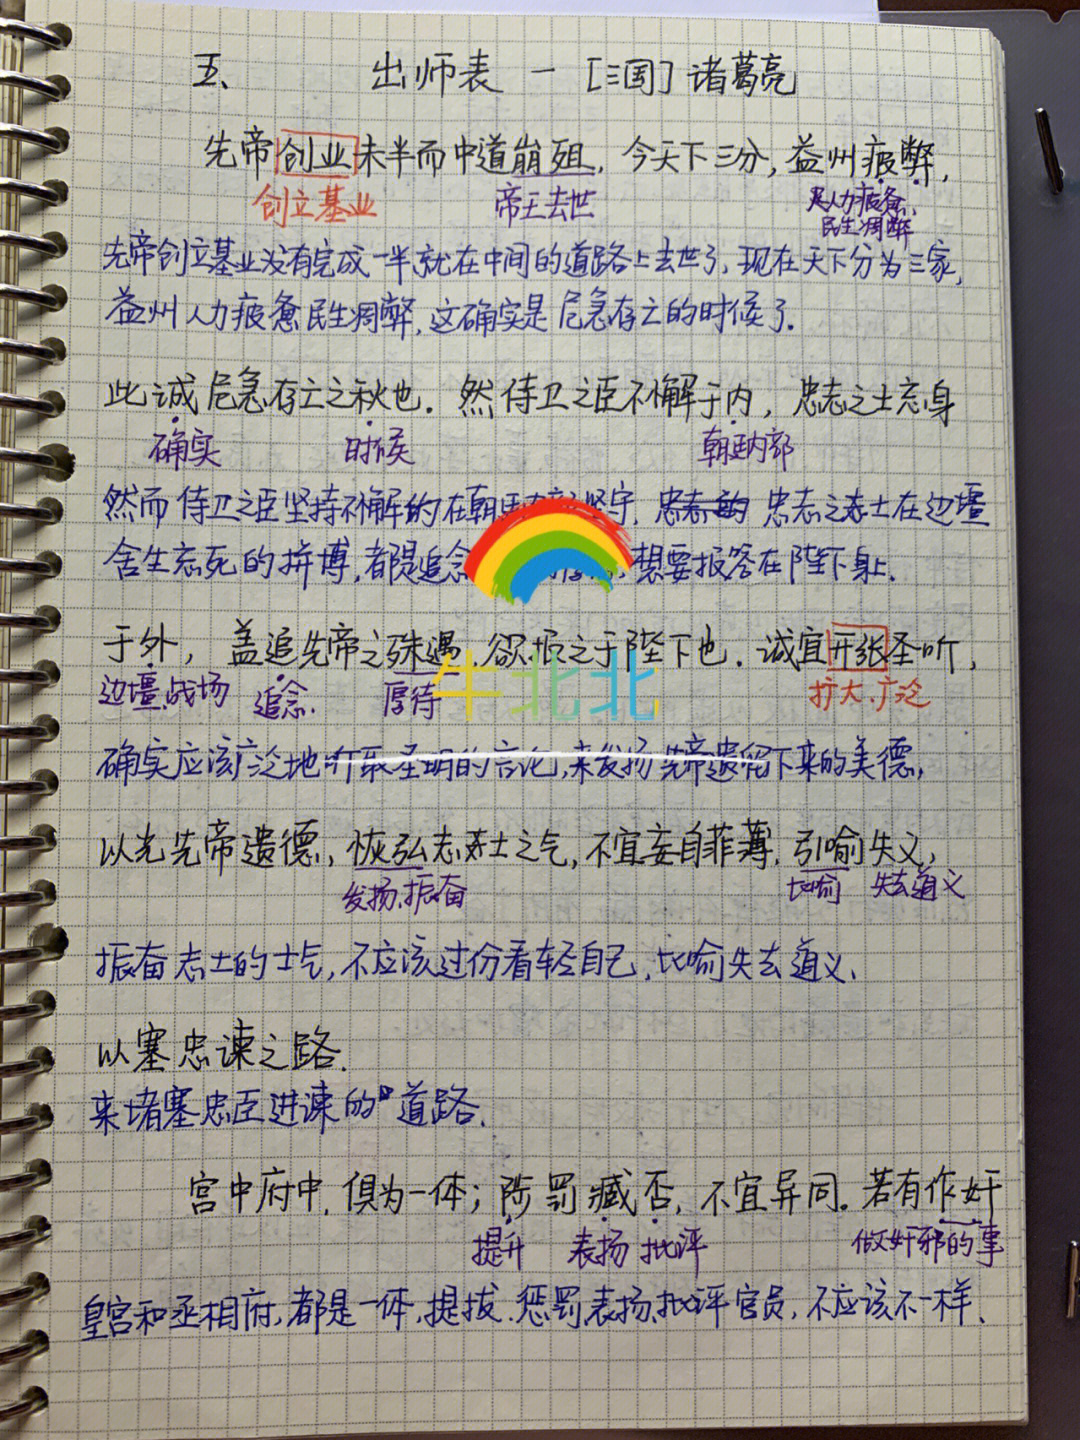 五、 出师表 — [三国] 诸葛亮
先帝创业未半而中道崩殂，今天下三分，益州疲弊，
创立基业 帝王去世 人力疲惫、
民生凋弊
先帝创立基业没有完成一半就在中间的道路上去世了，现在天下分为三家，
益州人力疲惫民生凋弊，这确实是危急存亡的时候了.
此诚危急存亡之秋也. 然侍卫之臣不懈于内， 忠志之士忘身
确实 时候 朝廷内部
然而侍卫之臣坚持不懈的在朝 坚守. 忠志之士在边壃
舍生忘死的拼博，都是追念 ，想要报答在陛下身上.
于外， 盖追先帝之殊遇，欲报之于陛下也. 诚宜开张圣听，
边壃、战场 追念. 厚待 扩大、广泛
牛北北
确实应该广泛地听取圣明的言论，来发扬先帝遗留下来的美德，
以光先帝遗德，恢弘志士之气，不宜妄自菲薄，引喻失义，
发扬、振奋 比喻 失去道义
振奋志士的士气，不应该过份看轻自己，比喻失去道义、
以塞忠谏之路.
来堵塞忠臣进谏的道路.
宫中府中，俱为一体；陟罚臧否，不宜异同. 若有作奸
提升 表扬 批评 做奸邪的事
皇宫和丞相府，都是一体，提拔、惩罚、表扬、批评官员，不应该不一样、